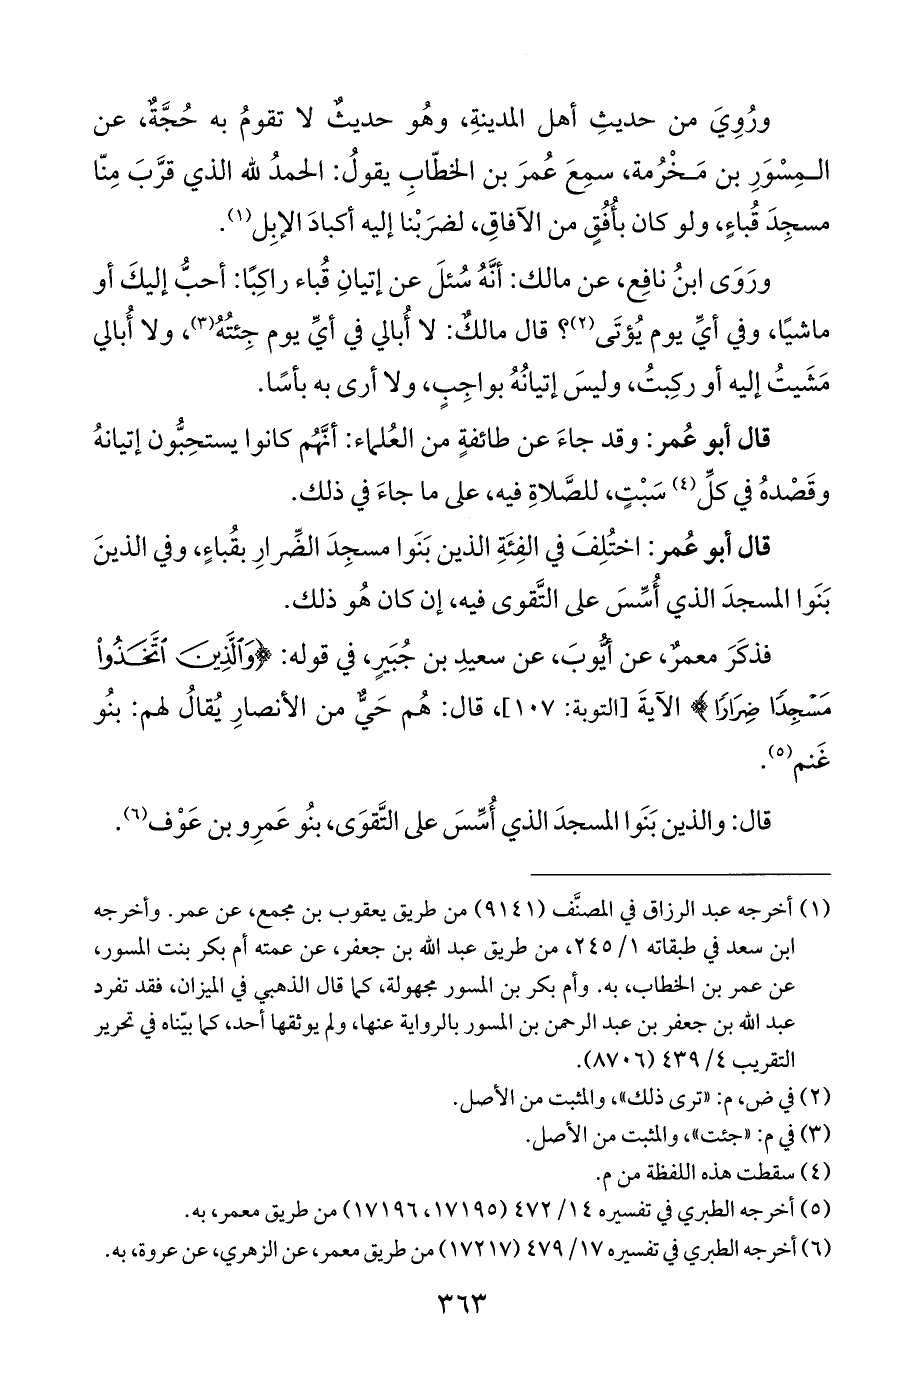 ورُوِيَ من حديثِ أهل المدينةِ، وهُو حديثٌ لا تقومُ به حُجَّةٌ، عن
الـمِسْوَرِ بن مَـخْرُمة، سمِعَ عُمرَ بن الخطّابِ يقولُ: الحمدُ لله الذي قرَّبَ مِنّا
مسجِدَ قُباءٍ، ولو كان بأُفُقٍ من الآفاقِ، لضرَبْنا إليه أكبادَ الإبِل(١).
ورَوَى ابنُ نافِع، عن مالك: أنَّهُ سُئلَ عن إتيانِ قُباء راكِبًا: أحبُّ إليكَ أو
ماشيًا، وفي أيِّ يوم يُؤتَى(٢)؟ قال مالكٌ: لا أُبالي في أيِّ يوم جِئتُهُ(٣)، ولا أُبالي
مَشَيتُ إليه أو ركِبتُ، وليسَ إتيانُهُ بواجِبٍ، ولا أرى به بأسًا.
قال أبو عُمر: وقد جاءَ عن طائفةٍ من العُلماء: أنَّهُم كانوا يستحِبُّون إتيانهُ
وقَصْدهُ في كلِّ(٤) سَبْتٍ، للصَّلاةِ فيه، على ما جاءَ في ذلك.
قال أبو عُمر: اختُلِفَ في الفِئَةِ الذين بَنَوا مسجِدَ الضِّرارِ بقُباءٍ، وفي الذينَ
بَنَوا المسجدَ الذي أُسِّسَ على التَّقوى فيه، إن كان هُو ذلك.
فذكَرَ معمرٌ، عن أيُّوبَ، عن سعيدِ بن جُبَيرٍ، في قوله: ﴿وَٱلَّذِينَ ٱتَّخَذُوا۟
مَسْجِدًا ضِرَارًا﴾ الآيةَ [التوبة: ١٠٧]، قال: هُم حَيٌّ من الأنصارِ يُقالُ لهم: بنُو
غَنم(٥).
قال: والذين بَنَوا المسجدَ الذي أُسِّسَ على التَّقوَى، بنُو عَمرِو بن عَوْف(٦).
(١) أخرجه عبد الرزاق في المصنَّف (٩١٤١) من طريق يعقوب بن مجمع، عن عمر. وأخرجه
ابن سعد في طبقاته ١/ ٢٤٥، من طريق عبد الله بن جعفر، عن عمته أم بكر بنت المسور،
عن عمر بن الخطاب، به. وأم بكر بن المسور مجهولة، كما قال الذهبي في الميزان، فقد تفرد
عبد الله بن جعفر بن عبد الرحمن بن المسور بالرواية عنها، ولم يوثقها أحد، كما بيّناه في تحرير
التقريب ٤/ ٤٣٩ (٨٧٠٦).
(٢) في ض، م: «ترى ذلك»، والمثبت من الأصل.
(٣) في م: «جئت»، والمثبت من الأصل.
(٤) سقطت هذه اللفظة من م.
(٥) أخرجه الطبري في تفسيره ١٤/ ٤٧٢ (١٧١٩٥، ١٧١٩٦) من طريق معمر، به.
(٦) أخرجه الطبري في تفسيره ١٧/ ٤٧٩ (١٧٢١٧) من طريق معمر، عن الزهري، عن عروة، به.
٣٦٣